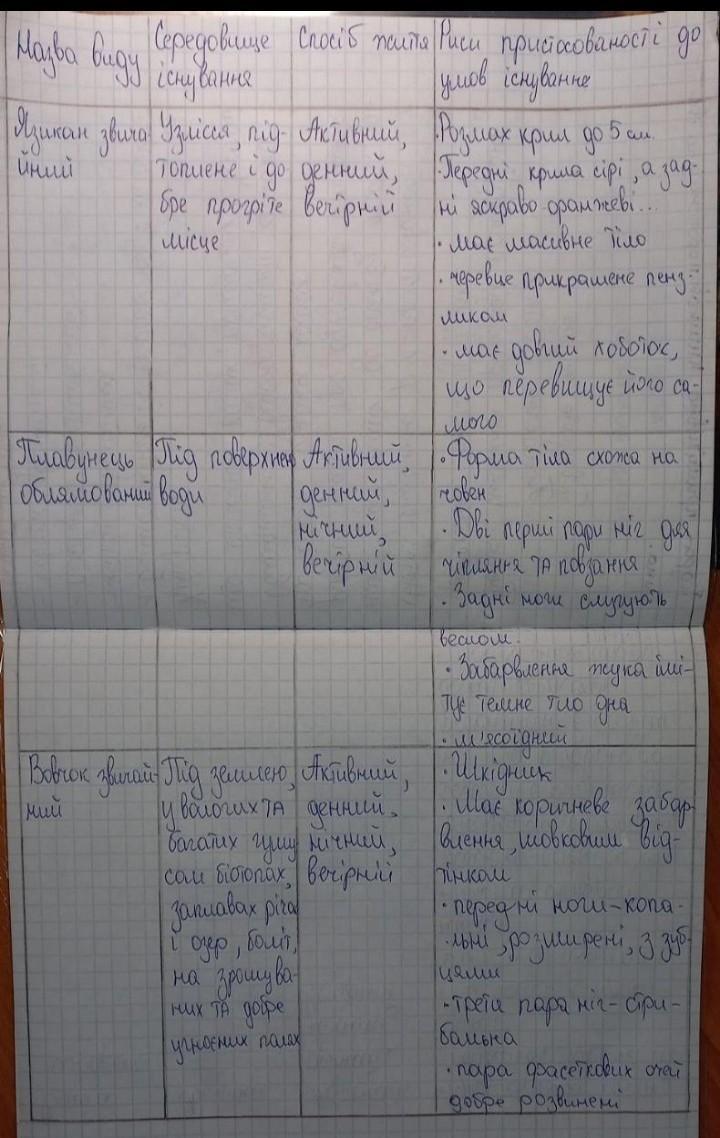 Назва виду
Середовище
існування
Спосіб життя
Риси пристосованості до
умов існування
Язикан звича
йний
Узлісся, під-
топлене і до
бре прогріте
місце
Активний,
денний,
вечірній
·Розмах крил до 5 см.
·Передні крила сірі, а зад-
ні яскраво-оранжеві...
· має масивне тіло
· черевце прикрашене пенз-
ликом
· має довгий хоботок,
що перевищує його са-
мого
Плавунець
облямований
Під поверхнею
води
Активний,
денний,
нічний,
вечірній
·Форма тіла схожа на
човен
· Дві перші пари ніг для
чіпляння та повзання
· Задні ноги слугують
веслом.
· Забарвлення жука імі-
тує темне тло дна
· м'ясоїдний
Вовчок звичай-
ний
Під землею,
у вологих та
багатих гуму
сом біотопах,
заплавах річок
і озер, боліт,
на зрошува-
них та добре
угноєних полях
Активний,
денний,
нічний,
вечірній
· Шкідник
· Має коричневе забар-
влення, шовковим від-
тінком
· передні ноги-копа-
льні, розширені, з зуб-
цями
· третя пара ніг- стри-
бальна
· пара фасеткових очей
добре розвинені